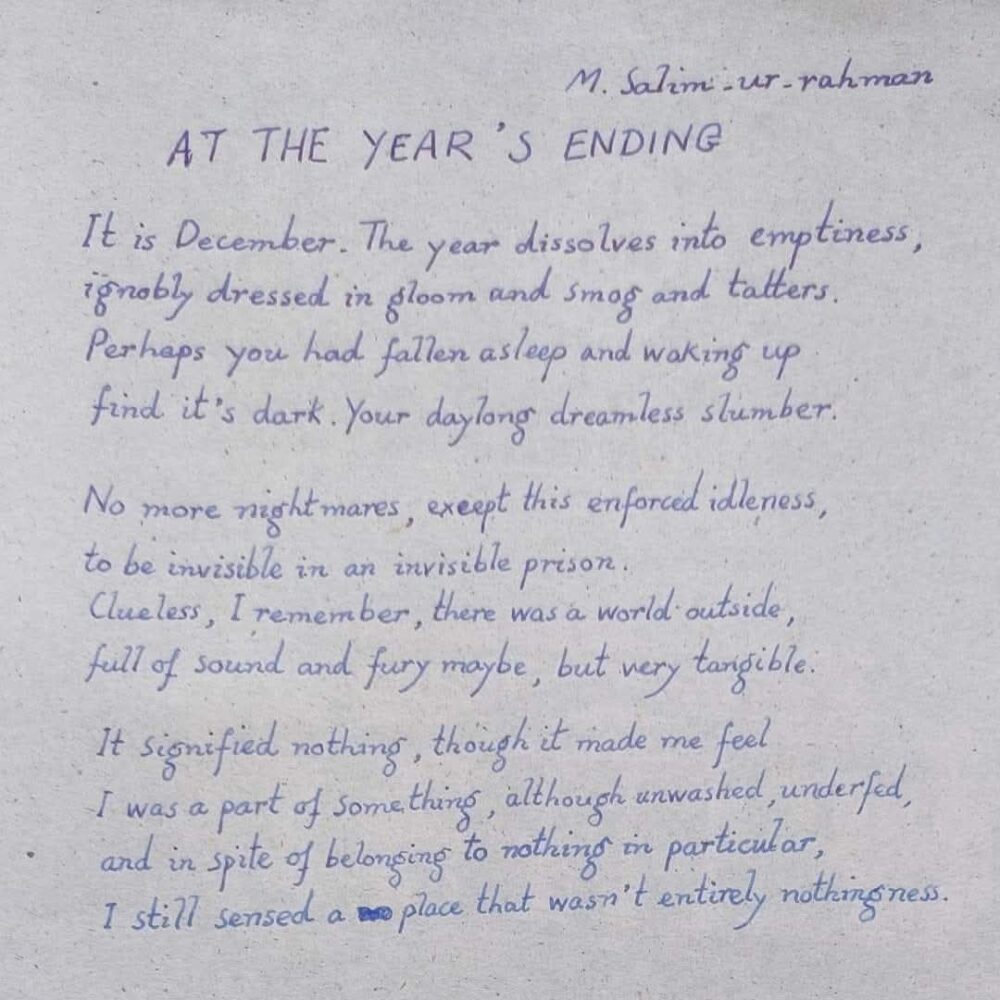 M. Salim-ur-rahman
AT THE YEAR'S ENDING
It is December. The year dissolves into emptiness,
ignobly dressed in gloom and smog and tatters.
Perhaps you had fallen asleep and waking up
find it's dark. Your daylong dreamless slumber.
No more nightmares, except this enforced idleness,
to be invisible in an invisible prison.
Clueless, I remember, there was a world outside,
full of sound and fury maybe, but very tangible.
It signified nothing, though it made me feel
I was a part of something, although unwashed, underfed,
and in spite of belonging to nothing in particular,
I still sensed a place that wasn't entirely nothingness.